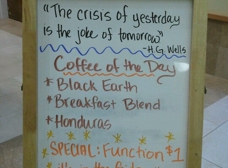 "The crisis of yesterday
is the joke of tomorrow"
-H.G. Wells
Coffee of the Day
* Black Earth
* Breakfast Blend
* Honduras
SPECIAL: Function $1